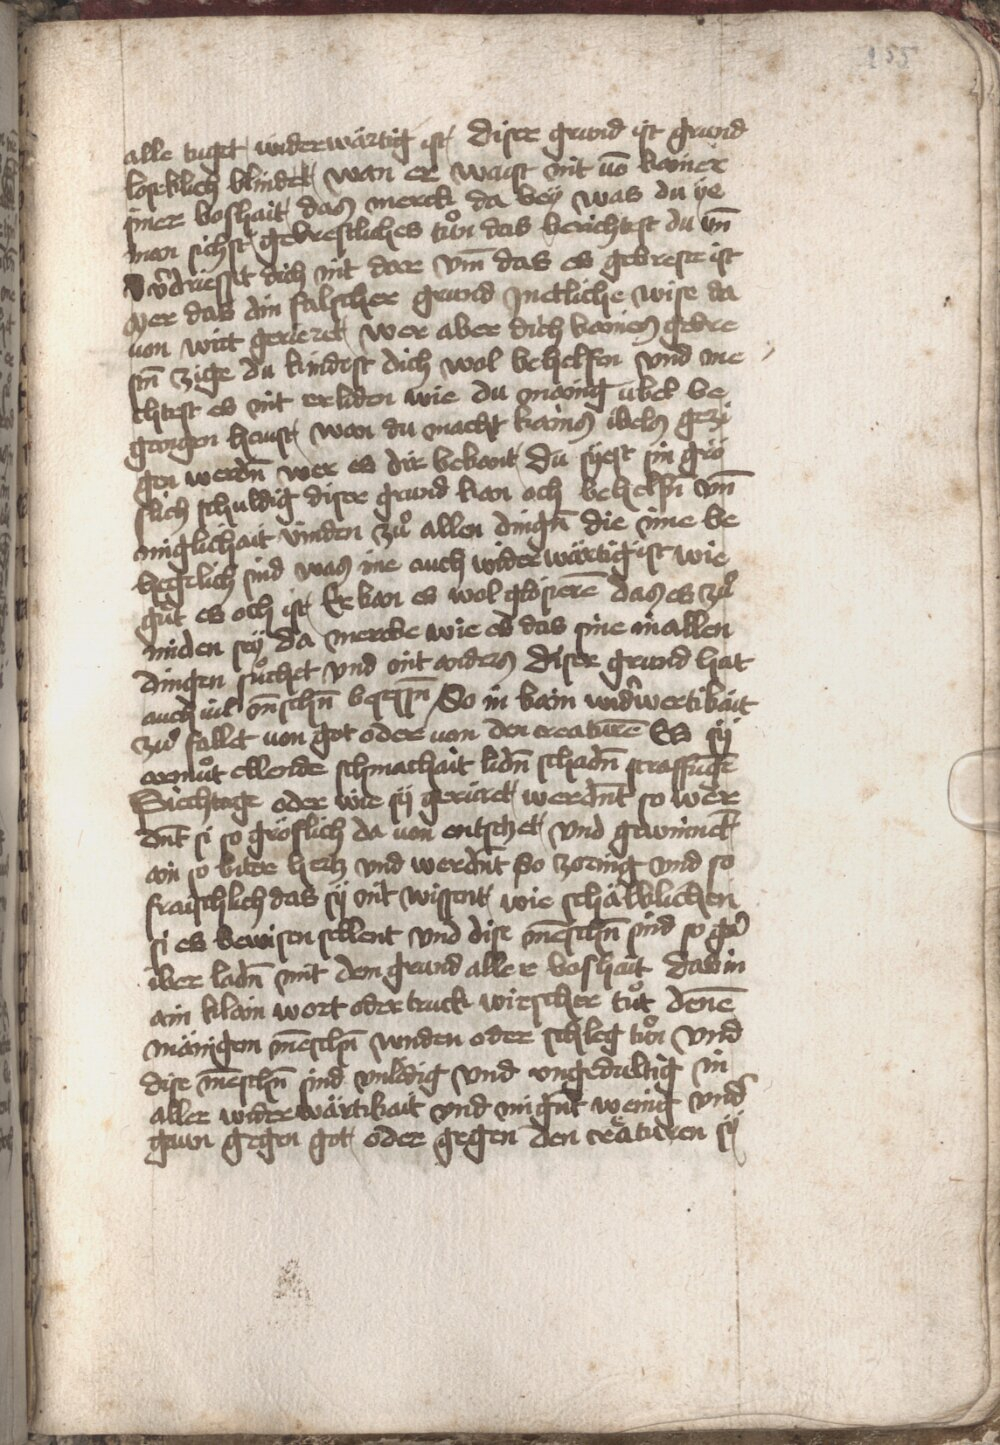 155
alle tuget widerwärtig ist Diser grund ist grund
loseklich blindet wan er waist nit vō kainer
siner boshait das merck da bey was du ye
man sichst gebrestliches tuͦn das berichtest du vn̄
v̄driesset dich nit dar vm̄ das es gebreste ist
wer das din falscher grund Inetliche wise da
von wirt gerieret wer aber dich kaines gebre
stn̄ zige du kindest dich wol behelfen vnd me
chtest es nit erliden wie du maing übel be
gangen haust wan du macht kains ibels gezi
gen werdn̄ wer es dir bekant du syest sin grö
slich schuldig diser grund kan och behelfn̄ vn̄
miglichait vinden zuͦ allen dingn̄ die ime be
hegelich sind was ime auch widerwärtig ist wie
guͦt es och ist Er kan es wol glosierē das es zuͦ
miden sey da mercke wie es das sine in allen
dingen suͦchet vnd nit anders Diser grund hat
auch vil mēschn̄ besessn̄ So in kain widerwertikait
zuͦ fallet von got oder von den creaturē Es sy
armuͦt ellende schmachait lidn̄ schadn̄ straffungē
Siechtage oder wie sy gerieret werdn̄t so wer
dn̄t si so gröslich da von entsetzet vnd gewinnet
ain so bitter hertz vnd werdn̄t so zornig vnd so
fraischlich das sy nit wissent wie schälklichen
si es bewisen sellent vnd dise mēschn̄ sind so gar
iber ladn̄ mit dem grund aller boshait das in
ain klain wort oder truck wirscher tuͦt denē
mänigem mēschn̄ wnden oder schleg tuͦn vnd
dise mēschn̄ sind vnlidig vnd vngedultig in
aller widerwärtikait vnd mignt wenig vnd
gawn gegen got oder gegen den creäturen sy